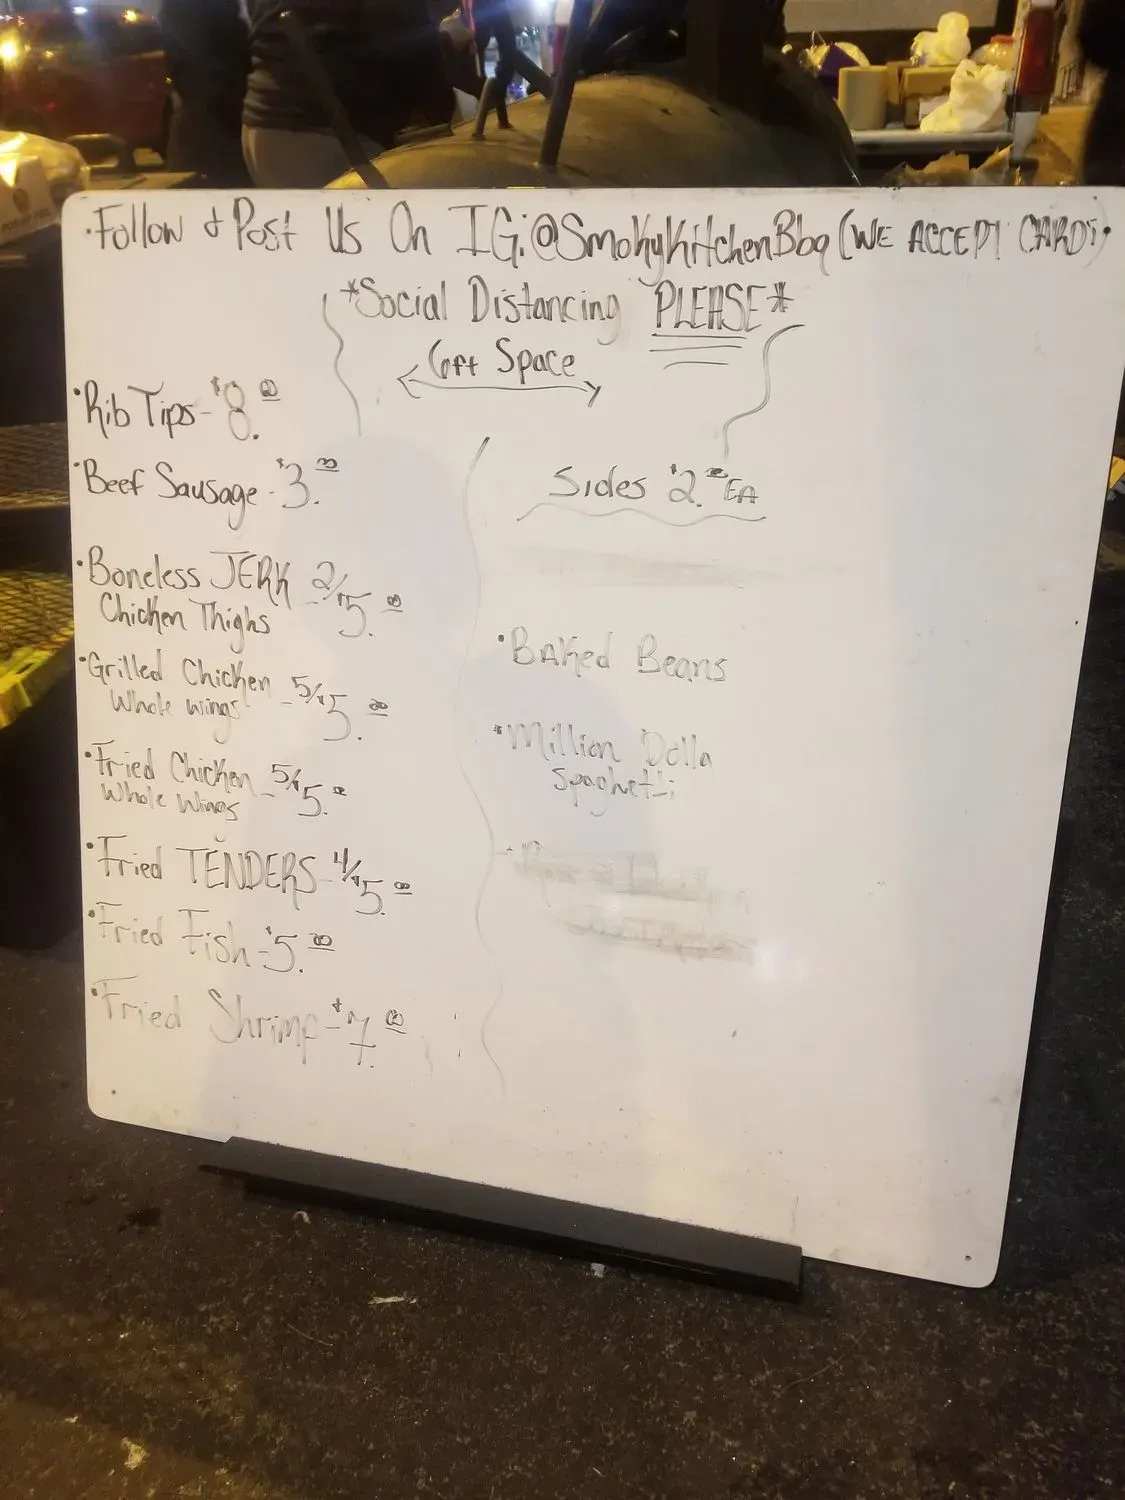 ·Follow & Post Us On IG:@SmokyKitchenBbq (WE ACCEPT CARDS)·
*Social Distancing PLEASE*
6ft Space
·Rib Tips - $8.00
·Beef Sausage - $3.00
·Boneless JERK - 2/$5.00
Chicken Thighs
·Grilled Chicken - 5/$5.00
Whole wings
·Fried Chicken - 5/$5.00
Whole Wings
·Fried TENDERS - 4/$5.00
·Fried Fish - $5.00
·Fried Shrimp - $7.00
Sides $2.00 EA
·BAKed Beans
·Million Dolla
Spaghetti